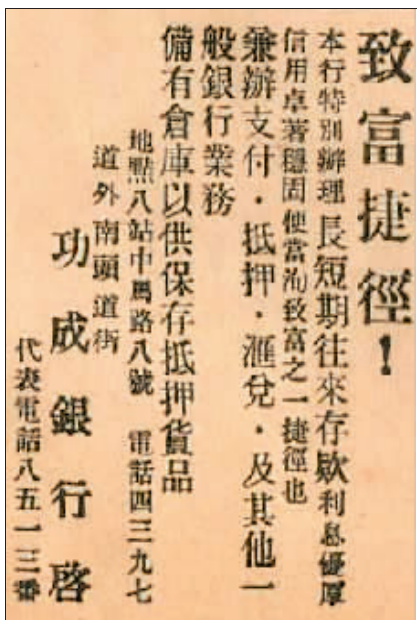 致富捷徑!
本行特別辦理長短期往來存欵利息優厚
信用卓著穩固便當洵致富之一捷徑也
兼辦支付·抵押·滙兌·及其他一
般銀行業務
備有倉庫以供保存抵押貨品
地點八站中馬路八號 電話四三九七
道外南頭道街
功成銀行啓
代表電話八五一三番